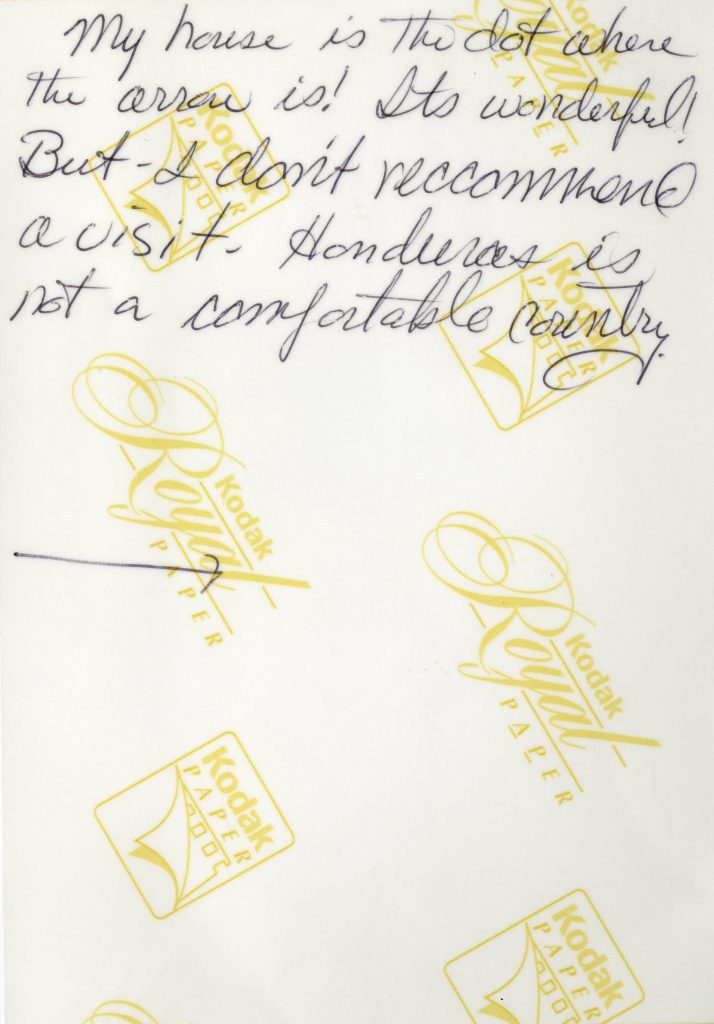 My house is the dot where
the arrow is! Its wonderful!
But - I don't reccommend
a visit. Honduras is
not a comfortable country.
Royal
PAPER
Kodak
PAPER
Kodak
PAPER
Kodak
Royal
PAPER
Kodak
Royal
PAPER
Kodak
PAPER
Kodak
PAPER